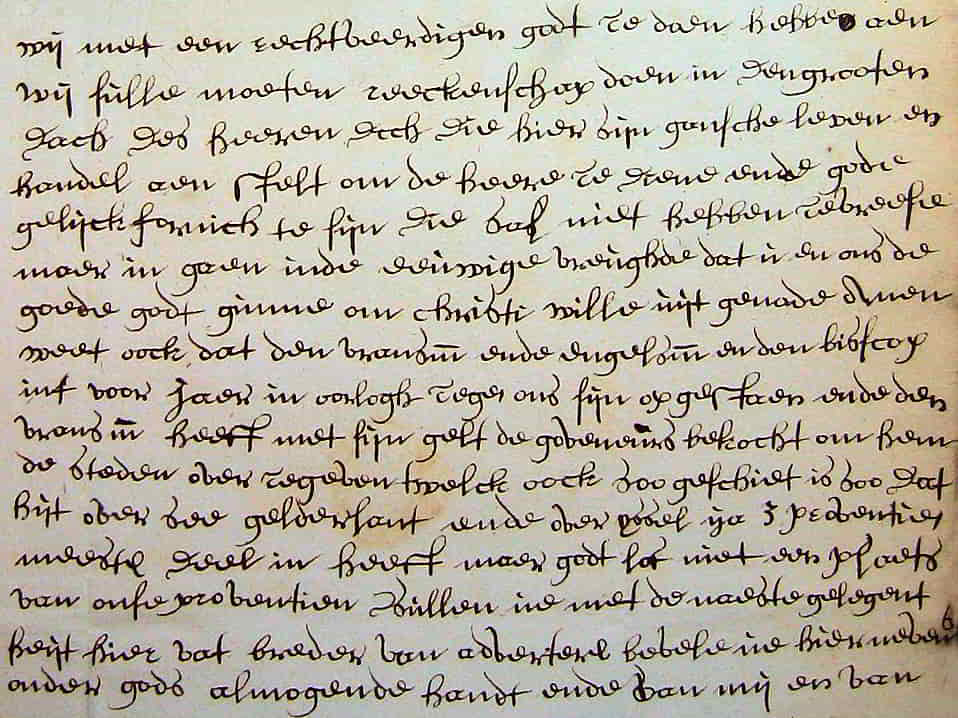 wij met een rechtveerdigen godt te doen hebben en
wij sulle moeten reeckenschap doen in den grooten
dach des heeren doch die hier sijn gansche leven en
handel aen stelt om de heere te diene ende gode
gelijckformich te sijn die sal niet hebben te vreese
maer in gaen inde eeuwige vreughde dat u en ons de
goede godt gunne om christi wille uijt genade amen
weet oock dat den vransm̄ ende engelsm̄ en den bisscop
int voor Jaer in oorlogh tegen ons sijn opgestaen ende den
vransm̄ heeft met sijn gelt de goveneurs bekocht om hem
de steden over te geven twelck oock soo geschiet is soo dat
hijt over see gelderlant ende over yssel ija 3 proventien
meeste deel in heeft maer godt lof niet een plaets
van onse proventien sullen ue met de naeste gelegent
heijt hier vat breder van adverteren bevele ue hier neven
onder gods almogende handt ende van mij en van